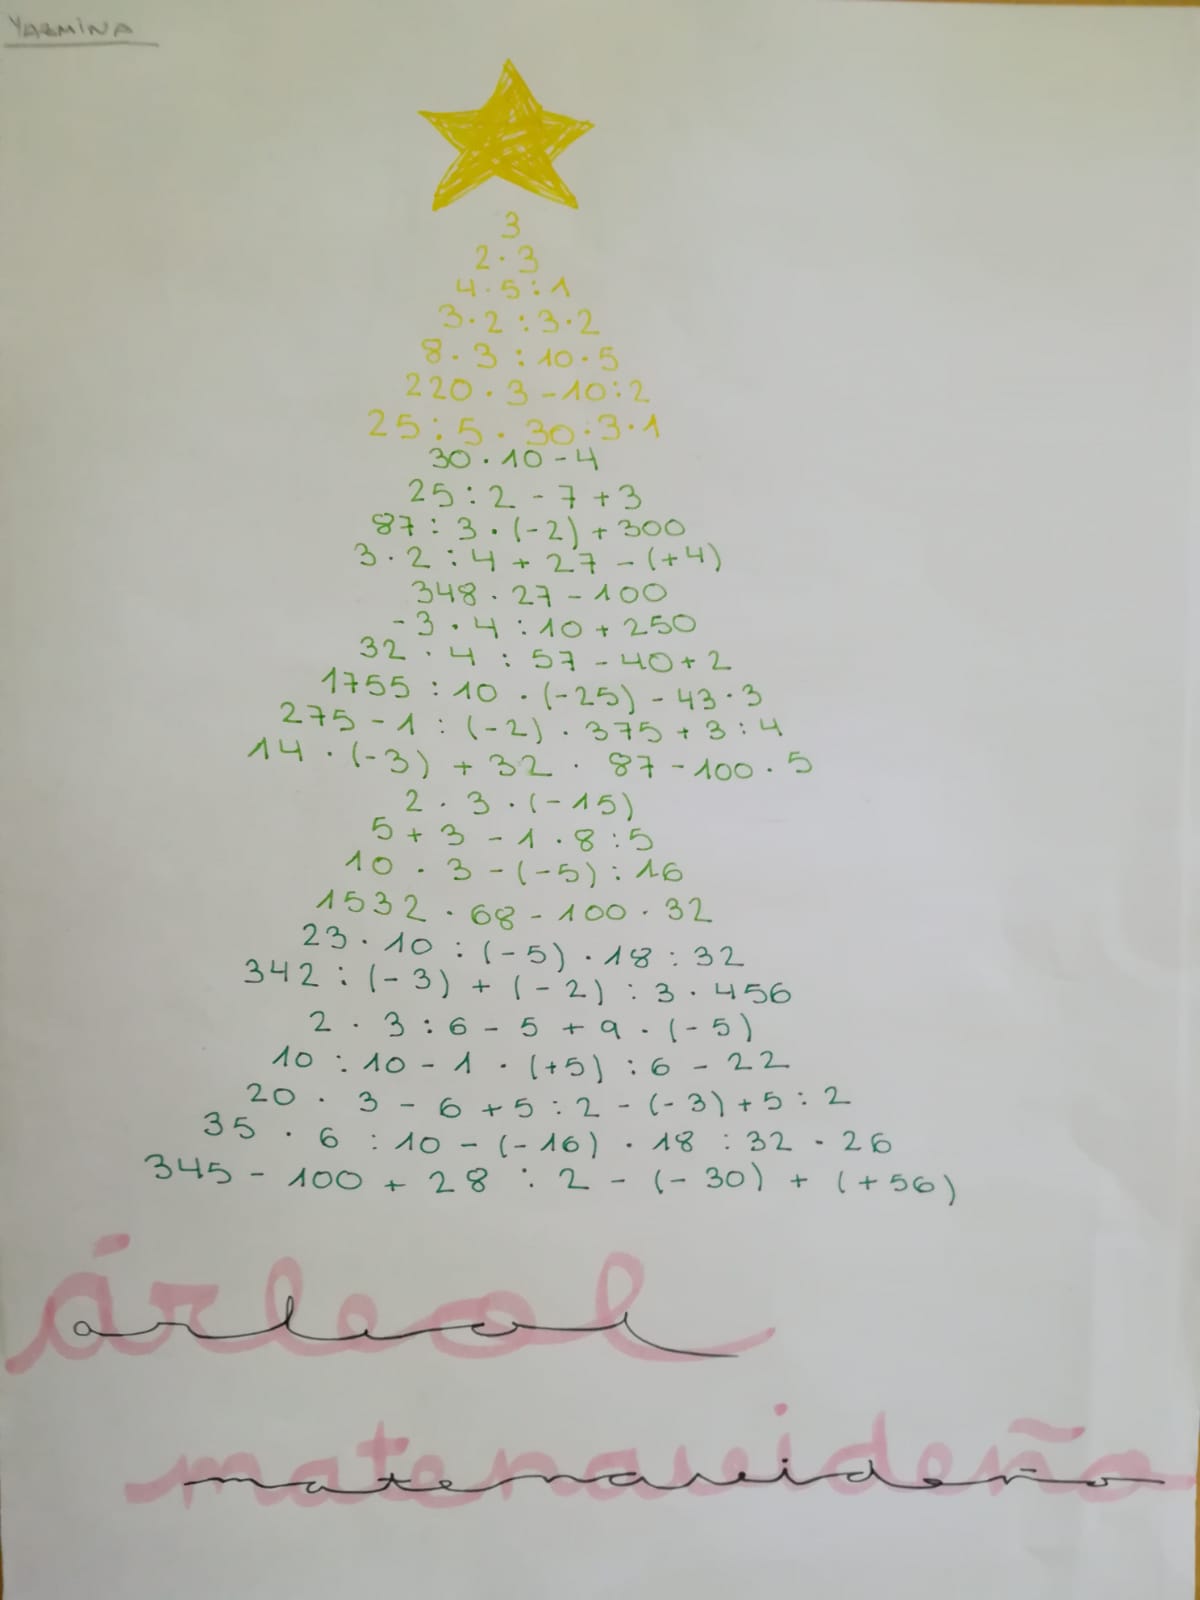 YAZMINA
3
2·3
4·5:1
3·2:3·2
8·3:10·5
220·3-10:2
25:5·30:3·1
30·10-4
25:2-7+3
87:3·(-2)+300
3·2:4+27-(+4)
348·27-100
-3·4:10+250
32·4:57-40+2
1755:10·(-25)-43·3
275-1:(-2)·375+3:4
14·(-3)+32·87-100·5
2·3·(-15)
5+3-1·8:5
10·3-(-5):16
1532·68-100·32
23·10:(-5)·18:32
342:(-3)+(-2):3·456
2·3:6-5+9·(-5)
10:10-1·(+5):6-22
20·3-6+5:2-(-3)+5:2
35·6:10-(-16)·18:32·26
345-100+28:2-(-30)+(+56)
árbol
matenavideño